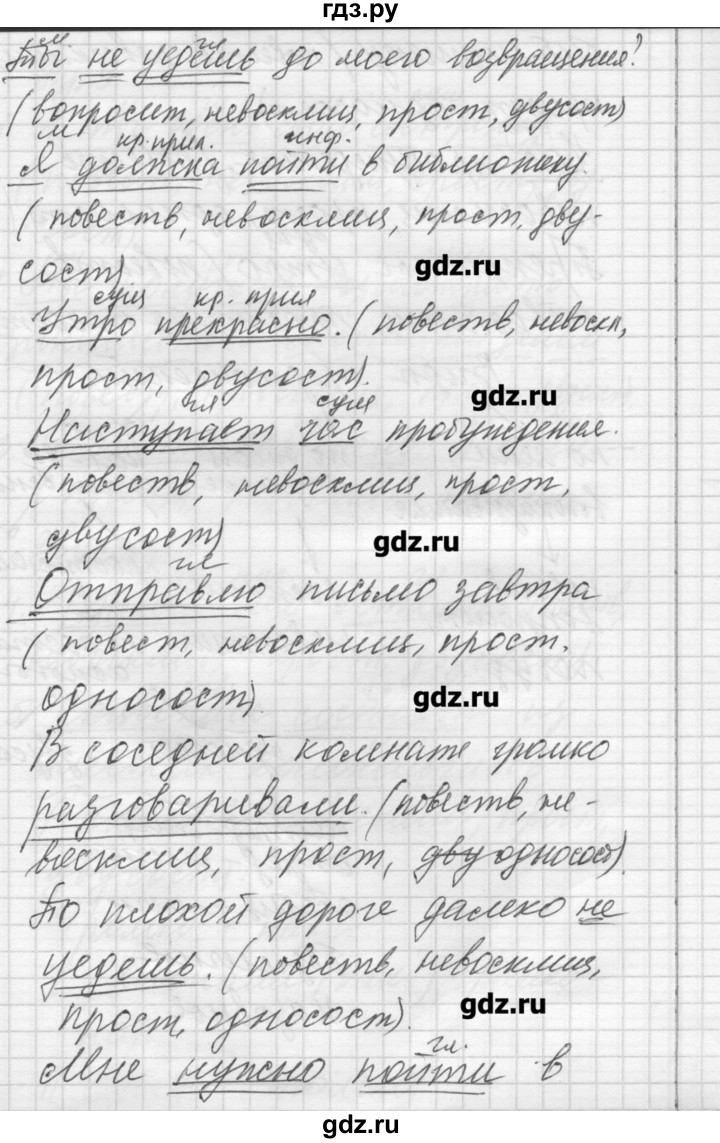 гдз.ру
м. гл
Ты не уедешь до моего возвращения?
(вопросит, невосклиц, прост, двусост)
м кр. прил. инф.
Я должна пойти в библиотеку.
(повеств, невосклиц, прост, дву-
сост) gdz.ru
сущ кр. прил
Утро прекрасно. (повеств, невоскл,
прост, двусост). gdz.ru
гл сущ
Наступает час пробуждения.
(повеств, невосклиц, прост,
двусост) gdz.ru
гл
Отправлю письмо завтра
(повест, невосклиц, прост.
односост). gdz.ru
В соседней комнате громко
разговаривали. (повеств, не-
восклиц, прост, дву односост).
По плохой дороге далеко не
уедешь. (повеств, невосклиц,
прост, односост). gdz.ru
гл.
Мне нужно пойти в
gdz.ru